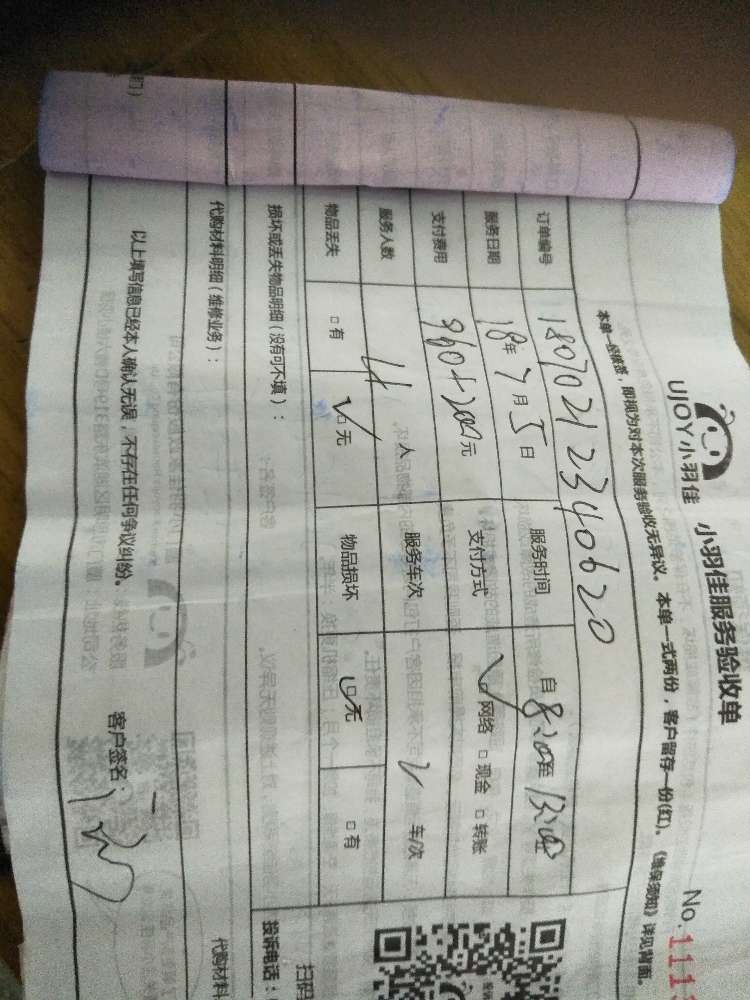 UJOY小羽佳 小羽佳服务验收单
No.111
本单一经病签，即视为对本次服务验收无异议。本单一式两份，客户留存一份(红)。《维保须知》详见背面。
订单编号 18070212340620
服务日期 18年7月5日 服务时间 自8:00至
支付费用 960+200元 支付方式 网络 □现金 □转账
服务人数 4人 服务车次 车/次
物品丢失 □有 □无 物品损坏 □无 □有
损坏或丢失物品明细（没有可不填）：
代购材料明细（维修业务）：
以上填写信息已经本人确认无误，不存在任何争议纠纷。 客户签名：
扫码
投诉电话：
代购材料